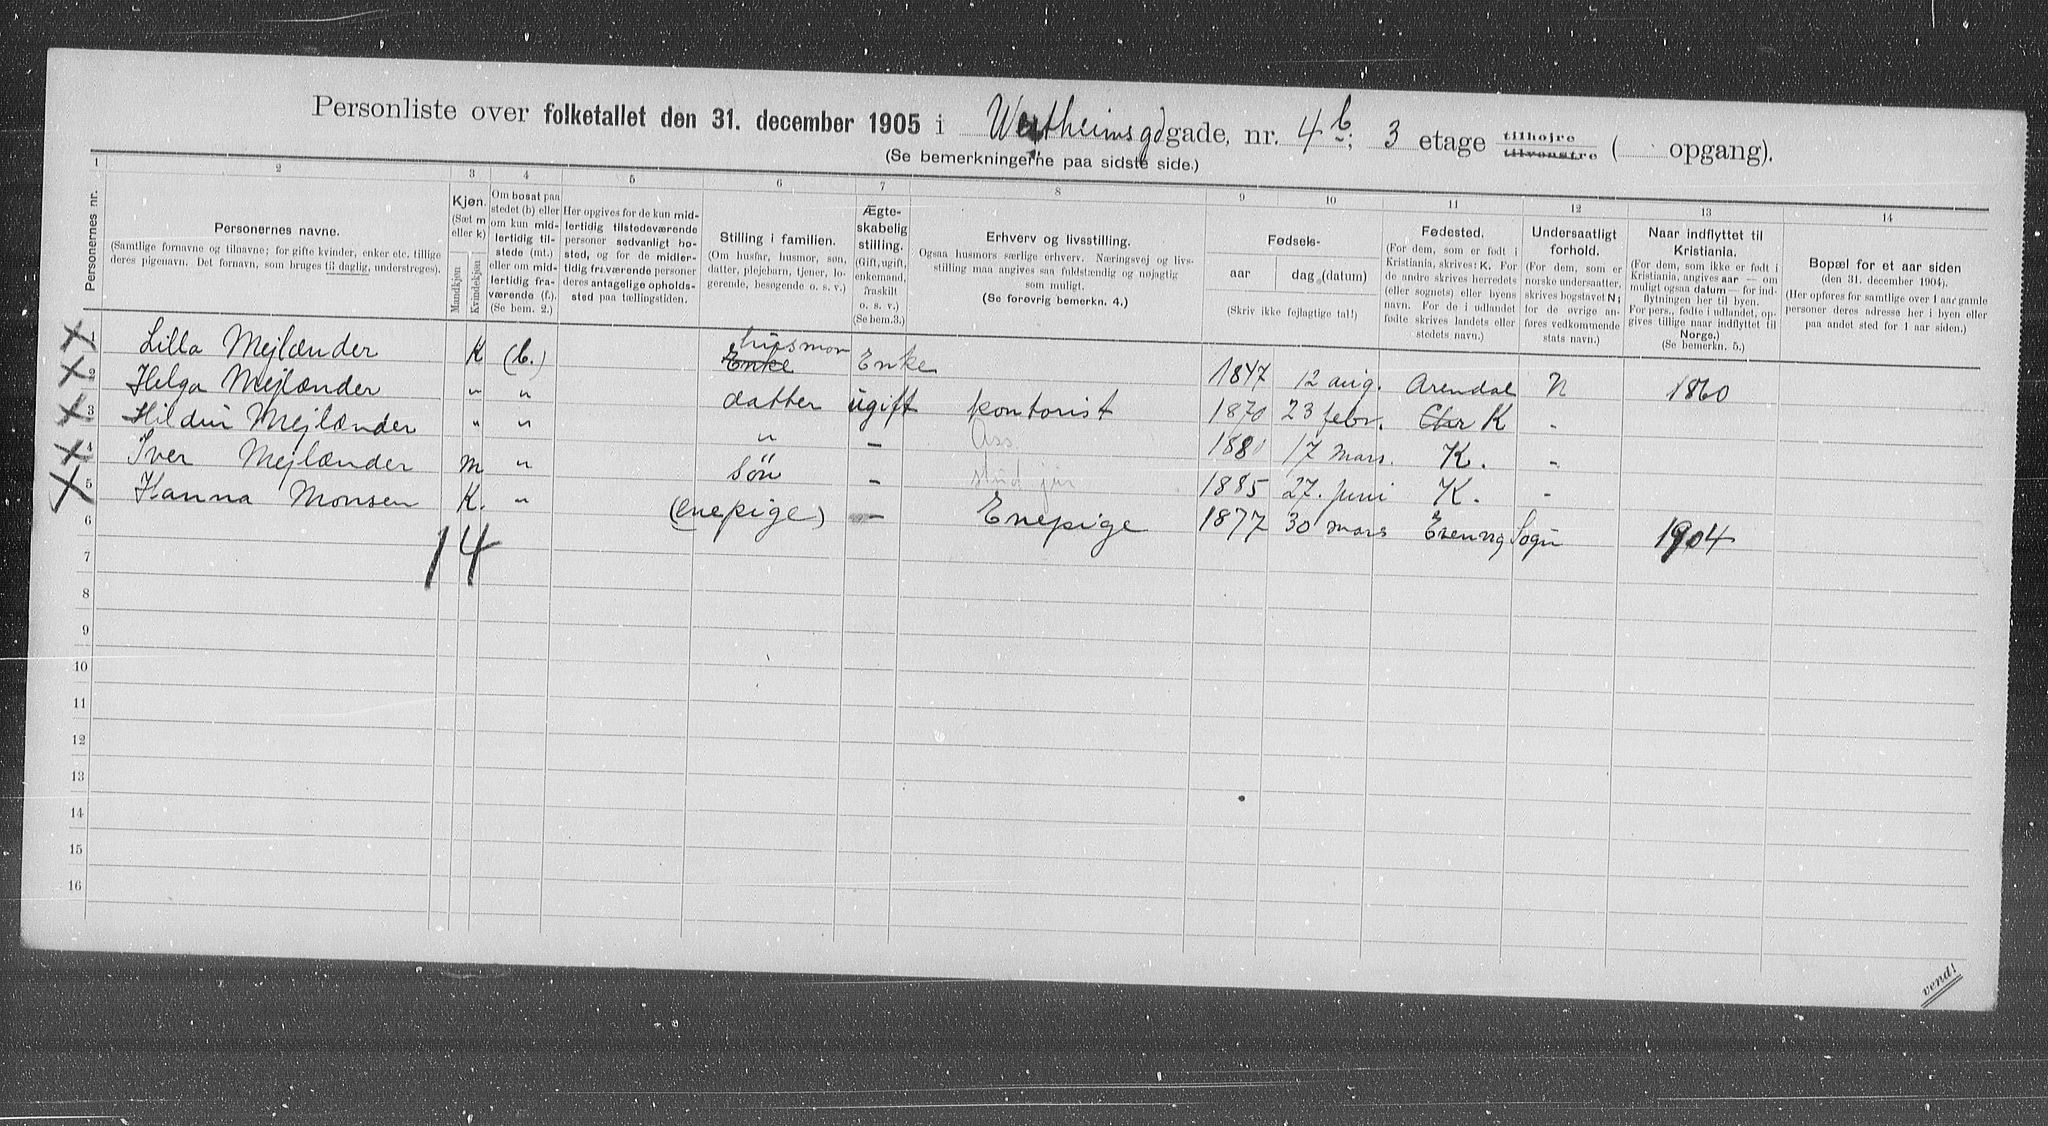 Personliste over folketallet den 31. december 1905 i Wertheimsgdgade, nr. 4b; 3 etage tilhøjre tilvenstre ( opgang).
(Se bemerkningerne paa sidste side.)
1 2 3 4 5 6 7 8 9 10 11 12 13 14
Personernes nr.
Personernes navne.
(Samtlige fornavne og tilnavne; for gifte kvinder, enker etc. tillige
deres pigenavn. Det fornavn, som bruges til daglig, understreges).
Kjøn.
(Sæt m
eller k)
Mandkjøn
Kvindekjøn
Om bosat paa
stedet (b) eller
om kun mid-
lertidig til-
stede (mt.)
eller om mid-
lertidig fra-
værende (f.).
(Se bem. 2.)
Her opgives for de kun mid-
lertidig tilstedeværende
personer sedvanligt bo-
sted, og for de midler-
tidig fraværende personer
deres antagelige opholds-
sted paa tællingstiden.
Stilling i familien.
(Om husfar, husmor, søn,
datter, plejebarn, tjener, lo-
gerende, besøgende o. s. v.)
Ægte-
skabelig
stilling.
(Gift, ugift,
enkemand,
fraskilt
o. s. v.)
(Se bem. 3.)
Erhverv og livsstilling.
Ogsaa husmors særlige erhverv. Næringsvej og livs-
stilling maa angives saa fuldstændig og nøjagtig
som muligt.
(Se forøvrig bemerkn. 4.)
Fødsels-
aar
dag (datum)
(Skriv ikke fejlagtige tal!)
Fødested.
(For dem, som er født i
Kristiania, skrives: K. For
de andre skrives herredets
(eller sognets) eller byens
navn. For de i udlandet
fødte skrives landets eller
stedets navn.)
Undersaatligt
forhold.
(For dem, som er
norske undersaatter,
skrives bogstavet N;
for de øvrige an-
føres vedkommende
stats navn.)
Naar indflyttet til
Kristiania.
(For dem, som ikke er født i
Kristiania, angives aar — om
muligt ogsaa datum — for ind-
flytningen her til byen.
For pers., fødte i udlandet, op-
gives tillige naar indflyttet til
Norge.)
(Se bemerkn. 5.)
Bopæl for et aar siden
(den 31. december 1904).
(Her opføres for samtlige over 1 aar gamle
personer deres adresse her i byen eller
paa andet sted for 1 aar siden.)
1 Lilla Mejlænder K (b.) Enke husmor Enke 1847 12 aug. Arendal N 1860
2 Helga Mejlænder " " datter ugift kontorist 1870 23 febr. K -
3 Hildur Mejlænder " " " - Ass 1881 17 mars. K. -
4 Iver Mejlænder m " søn - stud jur 1885 27. juni K. -
5 Hanna Monsen K. " (enepige) - Enepige 1877 30 mars Sogn 1904
6
14
7
8
9
10
11
12
13
14
15
16
vend!